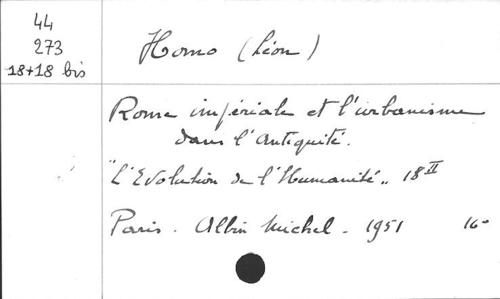 44
273
18+18 bis
Homo (Léon)
Rome impériale et l'urbanisme
dans l'Antiquité.
"L'Evolution de l'Humanité" 18 II
Paris. Albin Michel. 1951 16°